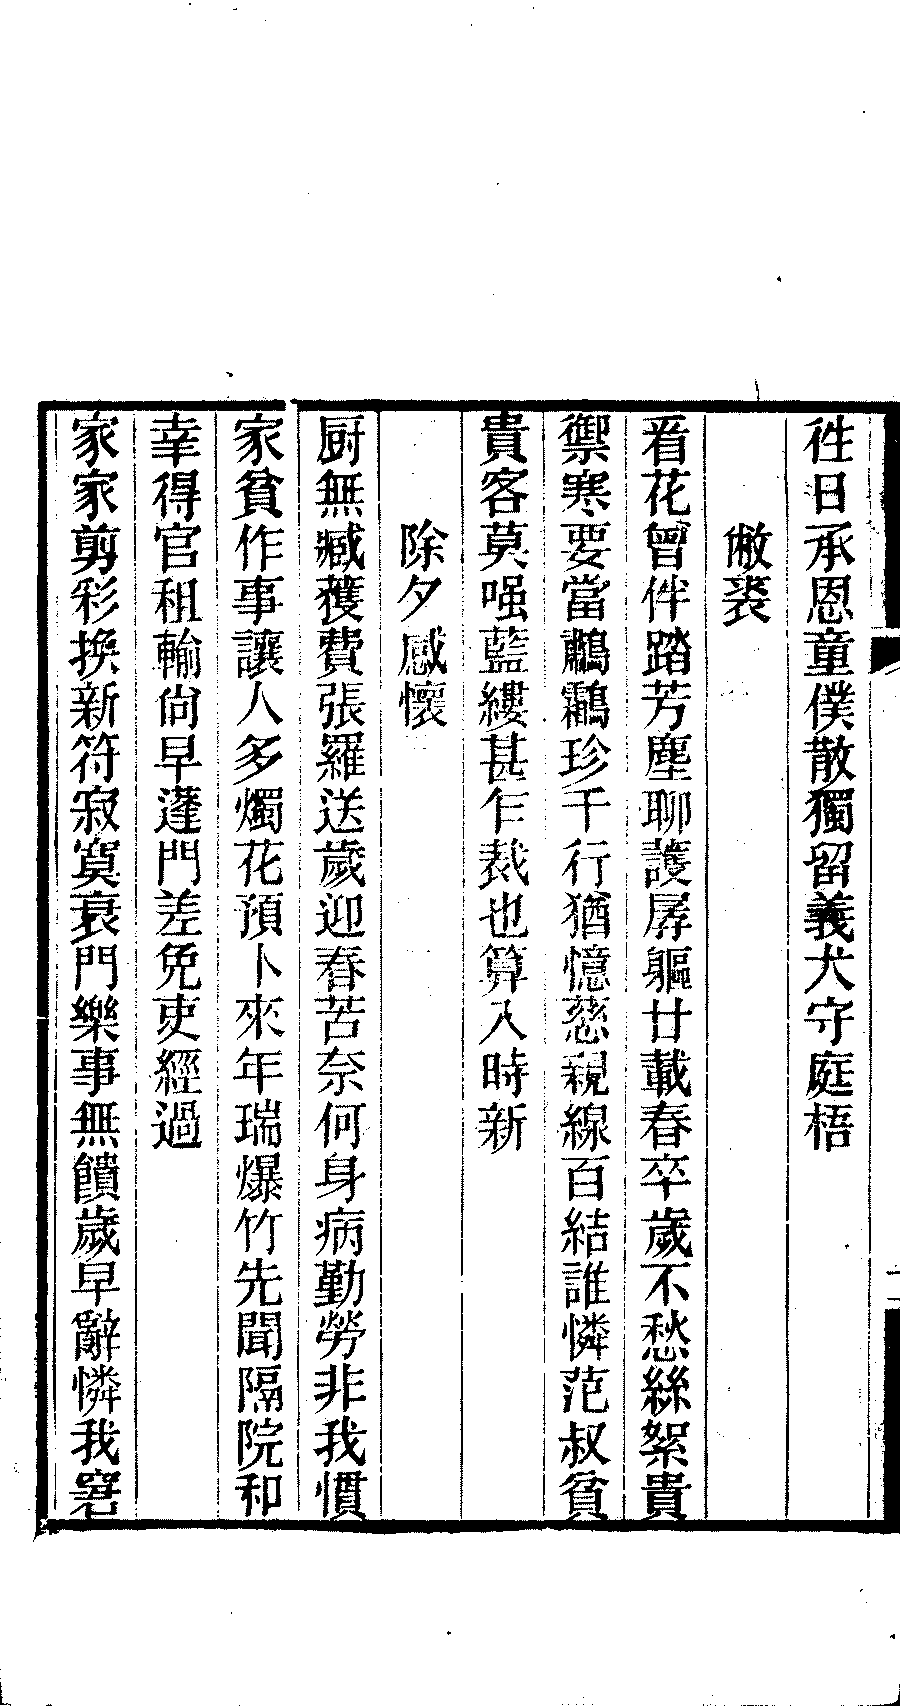 徃日承恩童僕散獨留義犬守庭梧
敝裘
看花曾伴踏芳塵聊護孱軀廿載春卒歲不愁絲絮貴
禦寒要當鷫鸘珍千行猶憶慈親線百結誰憐范叔貧
貴客莫强藍縷甚乍裁也算入時新
除夕感懷
厨無臧獲費張羅送歲迎春苦奈何身病勤勞非我慣
家貧作事讓人多燭花預卜來年瑞爆竹先聞隔院和
幸得官租輸尙早蓬門差免吏經過
家家剪彩換新符寂寞衰門樂事無饋歲早辭憐我窘